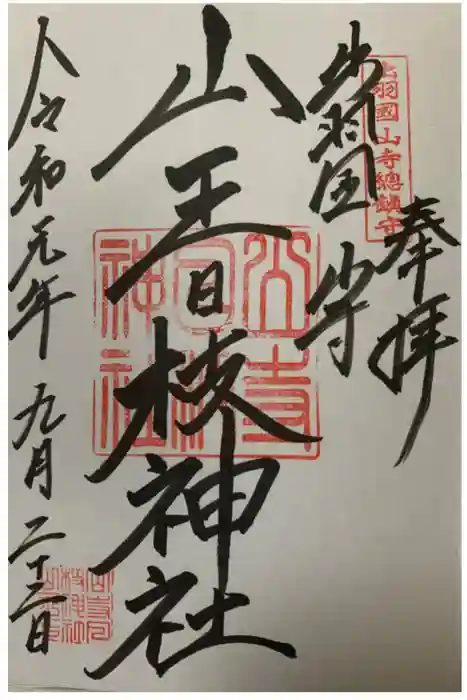 奉拝
出羽國山寺總鎮守
出羽国 山寺
山王日枝神社
山寺日枝神社
令和元年 九月二十三日